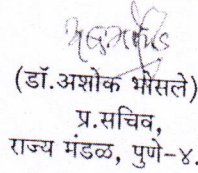 (डॉ.अशोक भोसले)
प्र.सचिव,
राज्य मंडळ, पुणे-४.